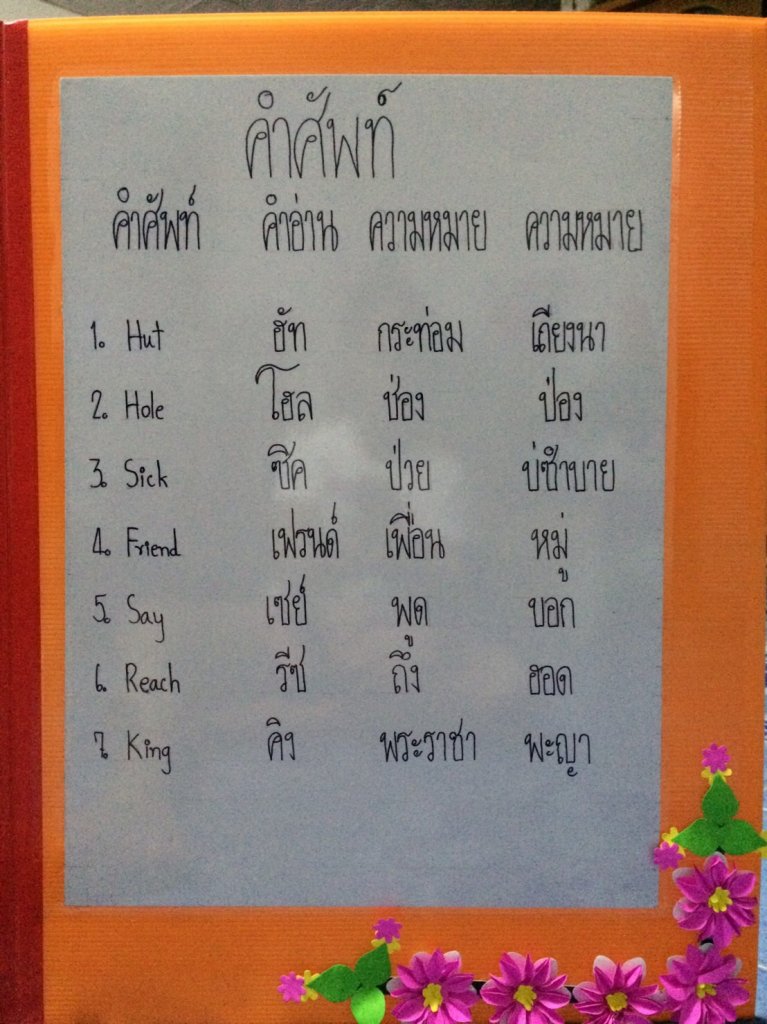 คำศัพท์
คำศัพท์ คำอ่าน ความหมาย ความหมาย
1. Hut ฮัท กระท่อม เถียงนา
2. Hole โฮล ช่อง ป่อง
3. Sick ซิค ป่วย บ่ซำบาย
4. Friend เฟรนด์ เพื่อน หมู่
5. Say เซย์ พูด บอก
6. Reach รีช ถึง ฮอด
7. King คิง พระราชา พะญา